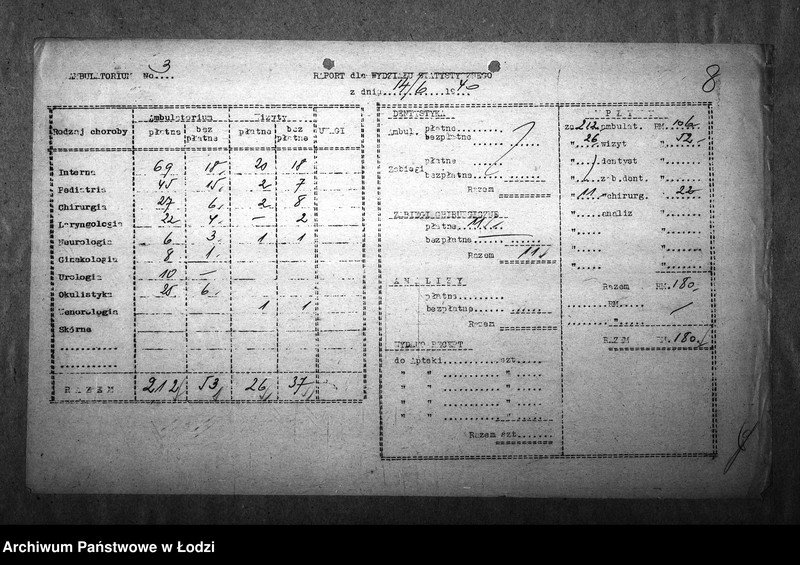 AMBULATORIUM No 3
RAPORT dla WYDZIAŁU STATYSTYCZNEGO
z dnia 14/6 1940
8
Rodzaj choroby
Ambulatorium
Wizyty
UWAGI
płatne
bez płatne
płatne
bez płatne
Interna 69 18 20 18
Pediatria 45 15 2 7
Chirurgia 27 6 2 8
Laryngologia 22 4 – 2
Neurologia 6 3 1 1
Ginekologia 8 1
Urologia 10 –
Okulistyka 25 6
Wenerologia 1 1
Skórne
RAZEM 212 53 26 37
DENTYSTYKA
Ambul. płatne
bezpłatne
Zabiegi płatne
bezpłatne
Razem
ZABIEGI CHIRURGICZNE
płatne 11
bezpłatne
Razem 11
ANALIZY
płatne
bezpłatne
Razem
WYDANO RECEPT
do Apteki szt.
" " "
" " "
" " "
" " "
Razem szt.
WPŁYWY
za 212 ambulat. RM. 106
" 26 wizyt " 52.-
" dentyst "
" zab.dent. "
" 11 chirurg. " 22
" analiz "
" "
" "
" "
Razem RM. 180.
RM.
"
RAZEM RM. 180.
Archiwum Państwowe w Łodzi